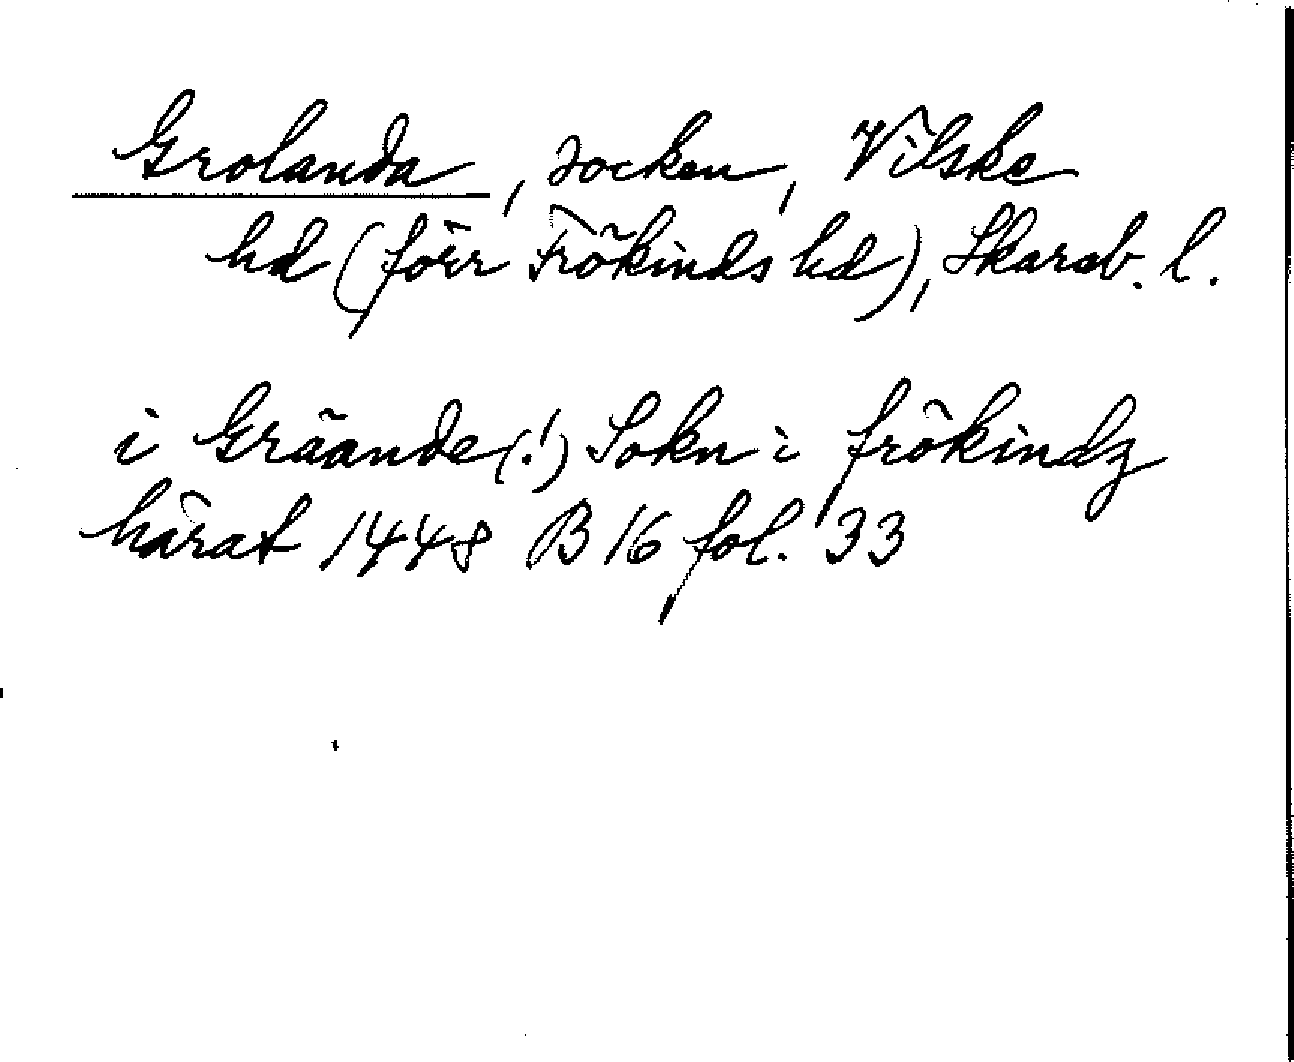 Grolanda, socken, Vilske
hd (förr Frökinds hd), Skarab. l.
i Gräande(!) Sokn i frökindz
härat 1448 B 16 fol. 33